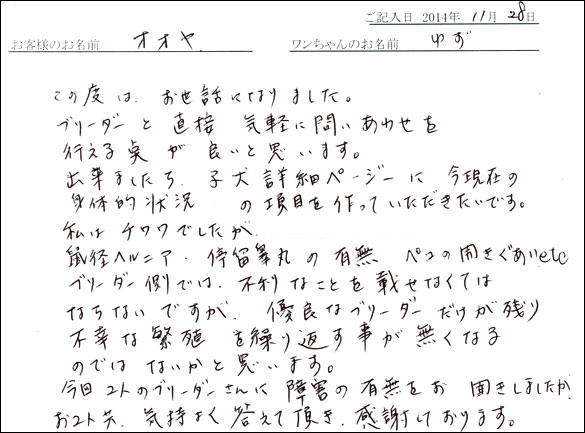 ご記入日 2014年 11月 28日
お客様のお名前 オオヤ ワンちゃんのお名前 ゆず
この度は、お世話になりました。
ブリーダーと直接 気軽に問いあわせを
行える点が良いと思います。
出来ましたら、子犬詳細ページーに今現在の
身体的状況 の項目を作っていただきたいです。
私はチワワでしたが、
鼠径ヘルニア、停留睾丸の有無 ペコの開きぐあいetc
ブリーダー側では、不利なことを載せなくては
ならないですが、優良なブリーダーだけが残り
不幸な繁殖を繰り返す事が無くなる
のではないかと思います。
今回2人のブリーダーさんに障害の有無をお聞きしましたが、
お2人共、気持よく答えて頂き、感謝しております。